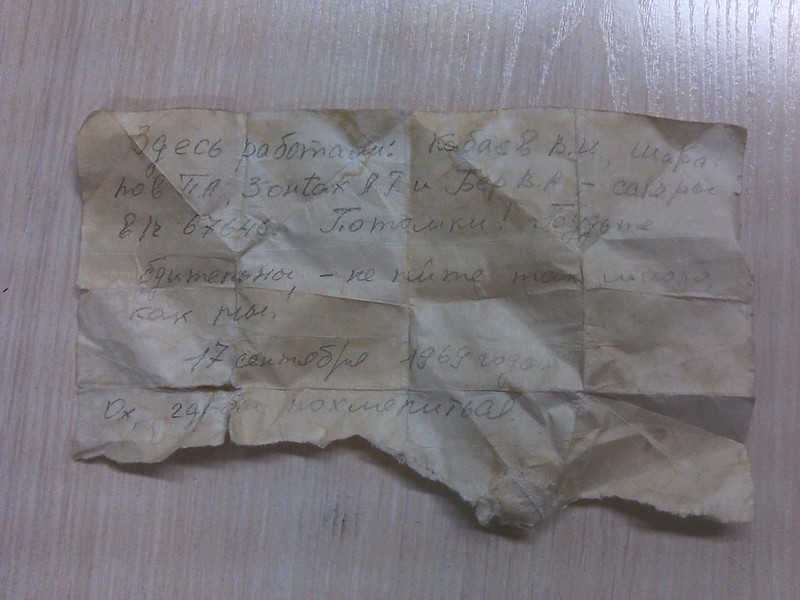 Здесь работали: Кобаев В.И, Шара-
пов П А, Зонтах Я. Г и Бер В. А - сапёры
в/ч 67646. Потомки! Будьте
бдительны, - не пейте так много
как мы.
17 сентября 1969 года.
Ох, где бы похмелиться!